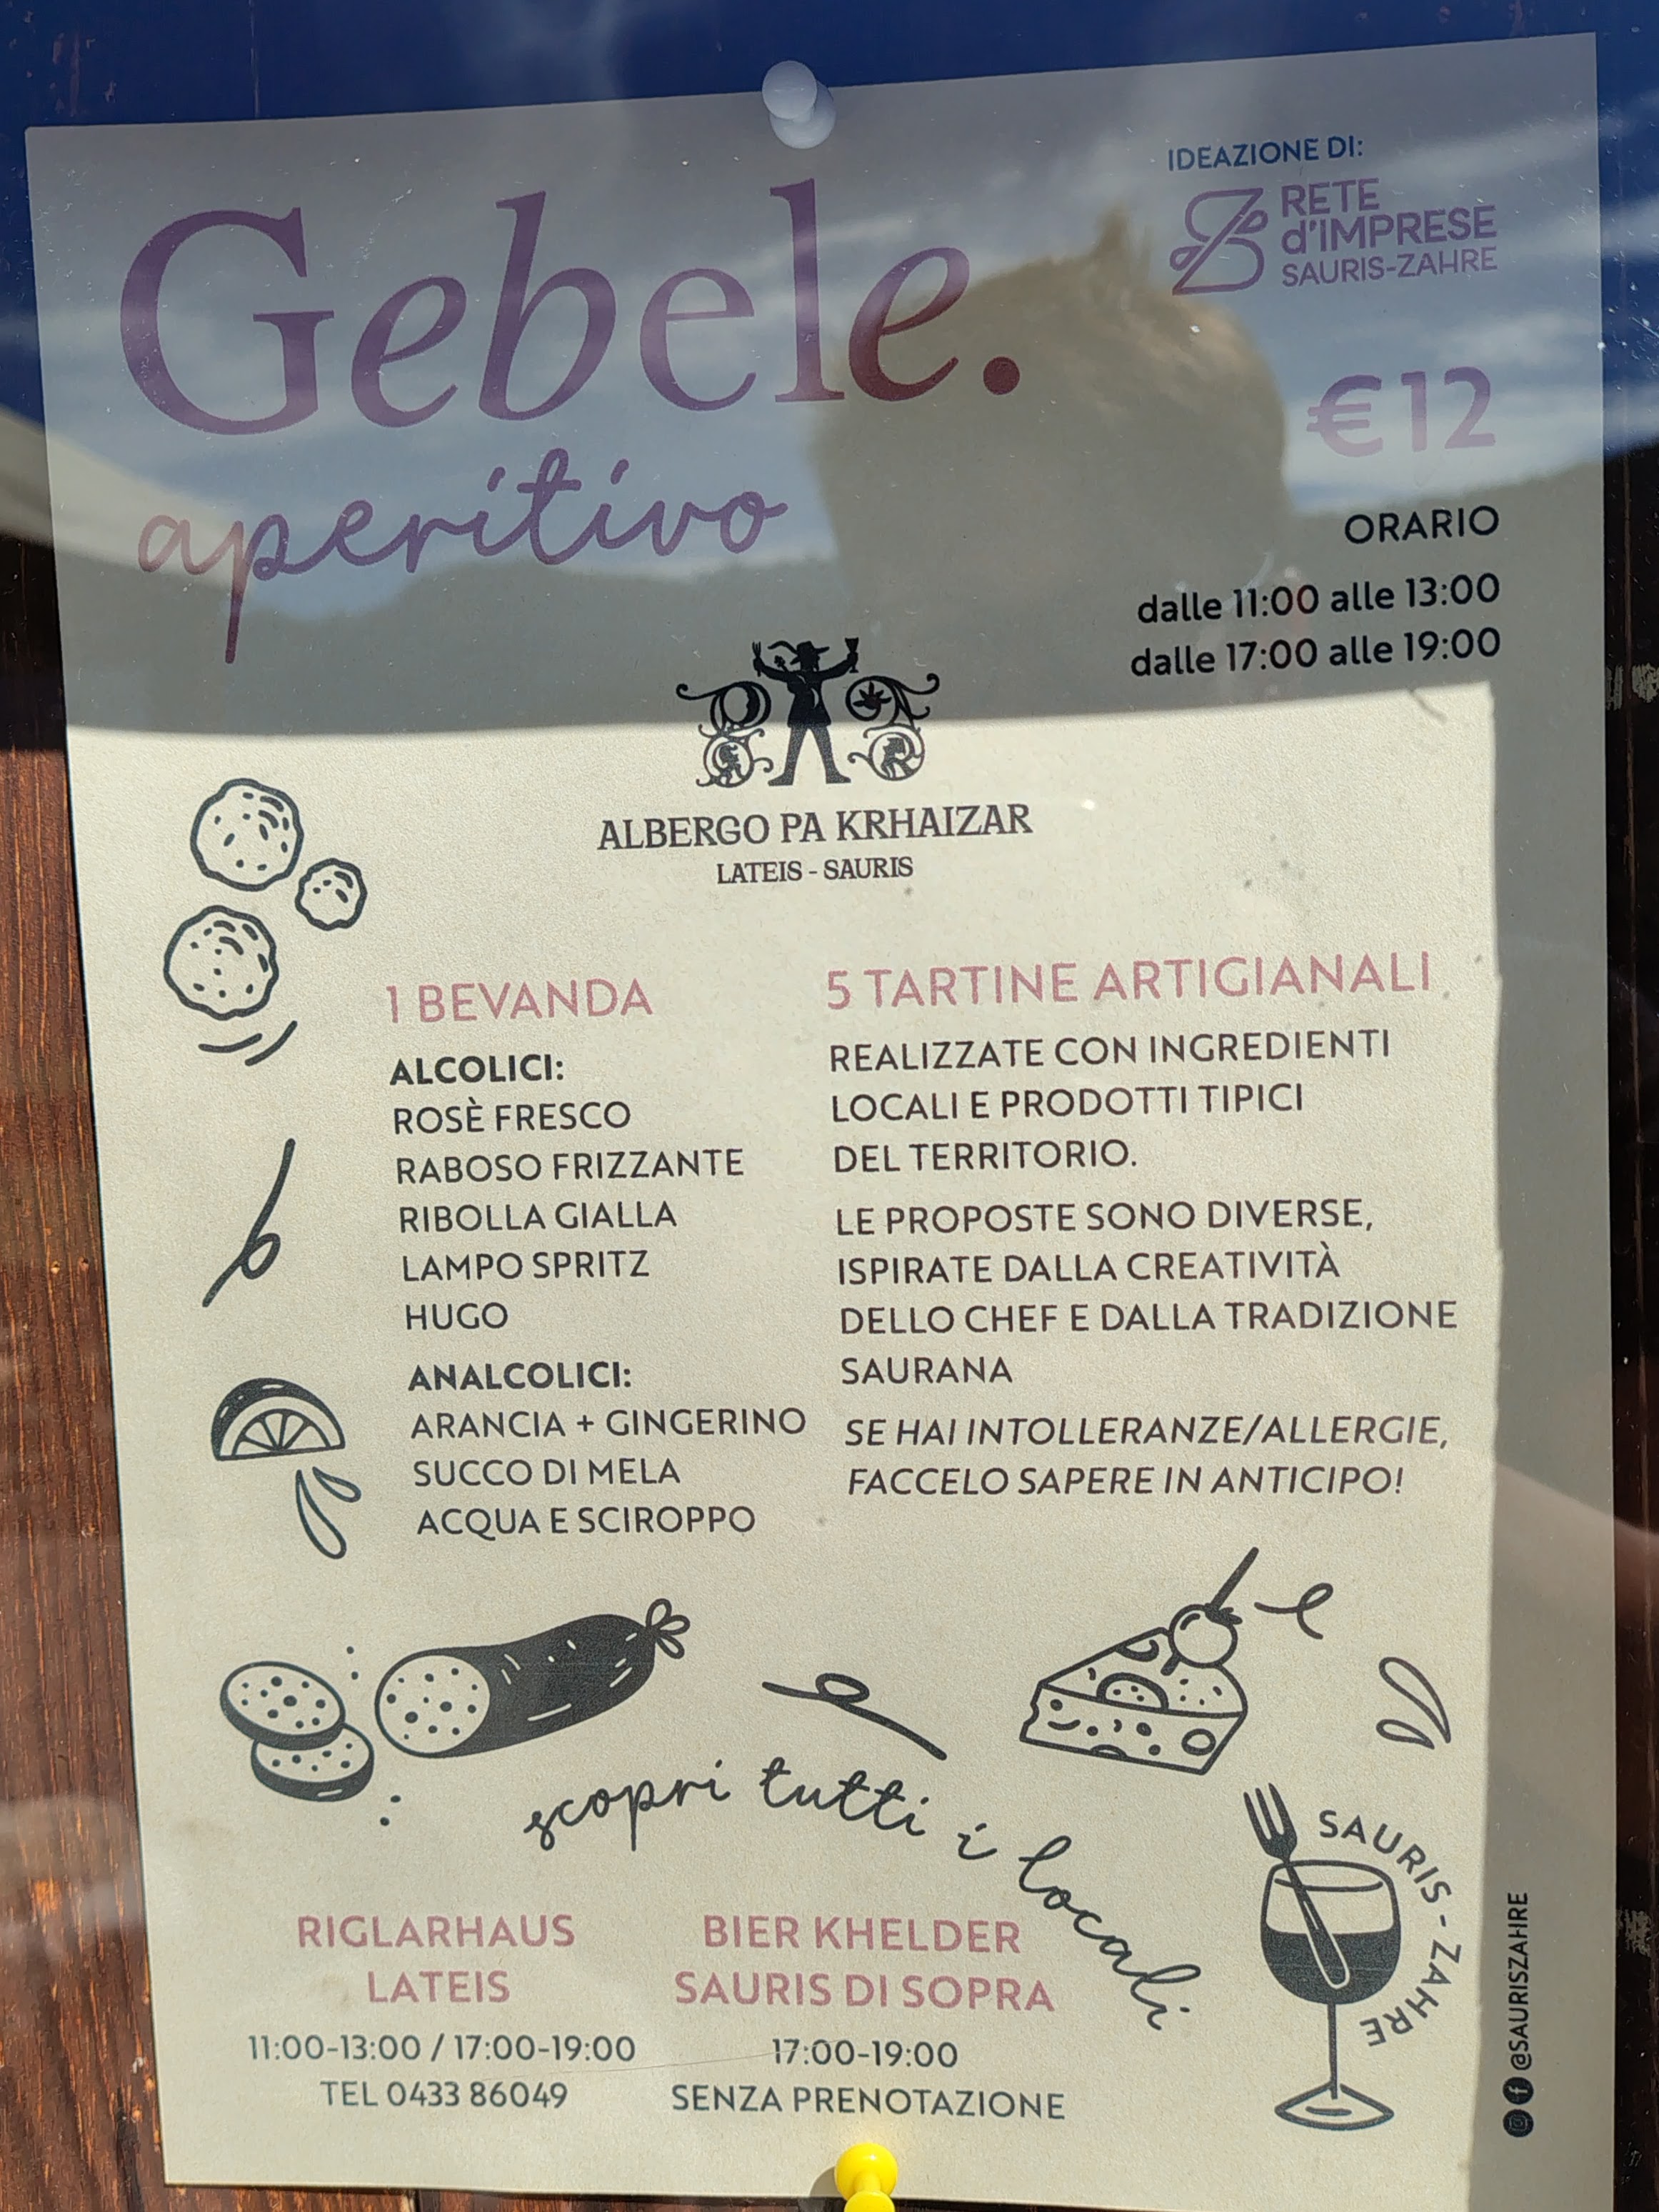 IDEAZIONE DI:
RETE
d'IMPRESE
SAURIS-ZAHRE
Gebele.
aperitivo
€12
ORARIO
dalle 11:00 alle 13:00
dalle 17:00 alle 19:00
ALBERGO PA KRHAIZAR
LATEIS - SAURIS
1 BEVANDA
ALCOLICI:
ROSÈ FRESCO
RABOSO FRIZZANTE
RIBOLLA GIALLA
LAMPO SPRITZ
HUGO
ANALCOLICI:
ARANCIA + GINGERINO
SUCCO DI MELA
ACQUA E SCIROPPO
5 TARTINE ARTIGIANALI
REALIZZATE CON INGREDIENTI
LOCALI E PRODOTTI TIPICI
DEL TERRITORIO.
LE PROPOSTE SONO DIVERSE,
ISPIRATE DALLA CREATIVITÀ
DELLO CHEF E DALLA TRADIZIONE
SAURANA
SE HAI INTOLLERANZE/ALLERGIE,
FACCELO SAPERE IN ANTICIPO!
scopri tutti i locali
RIGLARHAUS
LATEIS
11:00-13:00 / 17:00-19:00
TEL 0433 86049
BIER KHELDER
SAURIS DI SOPRA
17:00-19:00
SENZA PRENOTAZIONE
SAURIS - ZAHRE
@SAURISZAHRE